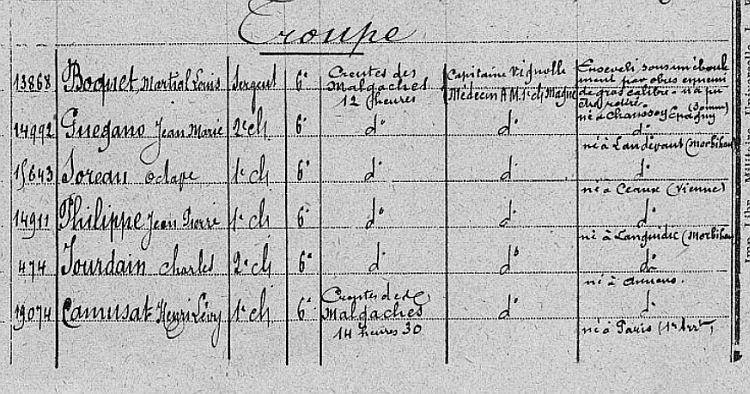 Troupe
13868 Boquet, Martial Louis Sergent 6e Creutes des Malgaches 12 heures Capitaine Vignolle Médecin A.M. 1e cl. Magne Enseveli sous un éboulement par obus ennemi de gros calibre. n'a pu être retiré.
né à Chaussoy Epagny (Somme)
14992 Guegano Jean Marie 2e cl 6e do do do
né à Landévant (Morbihan)
15643 Soreau Octave 1e cl 6e do do do
né à Ceaux (Vienne)
14911 Philippe Jean Pierre 1e cl 6e do do do
né à Languidic (Morbihan)
474 Jourdain Charles 2e cl 6e do do do
né à Amiens
19074 Camusat Henri Lévy 1e cl 6e Creutes des Malgaches 14 heures 30 do do
né à Paris (1er Arrt)